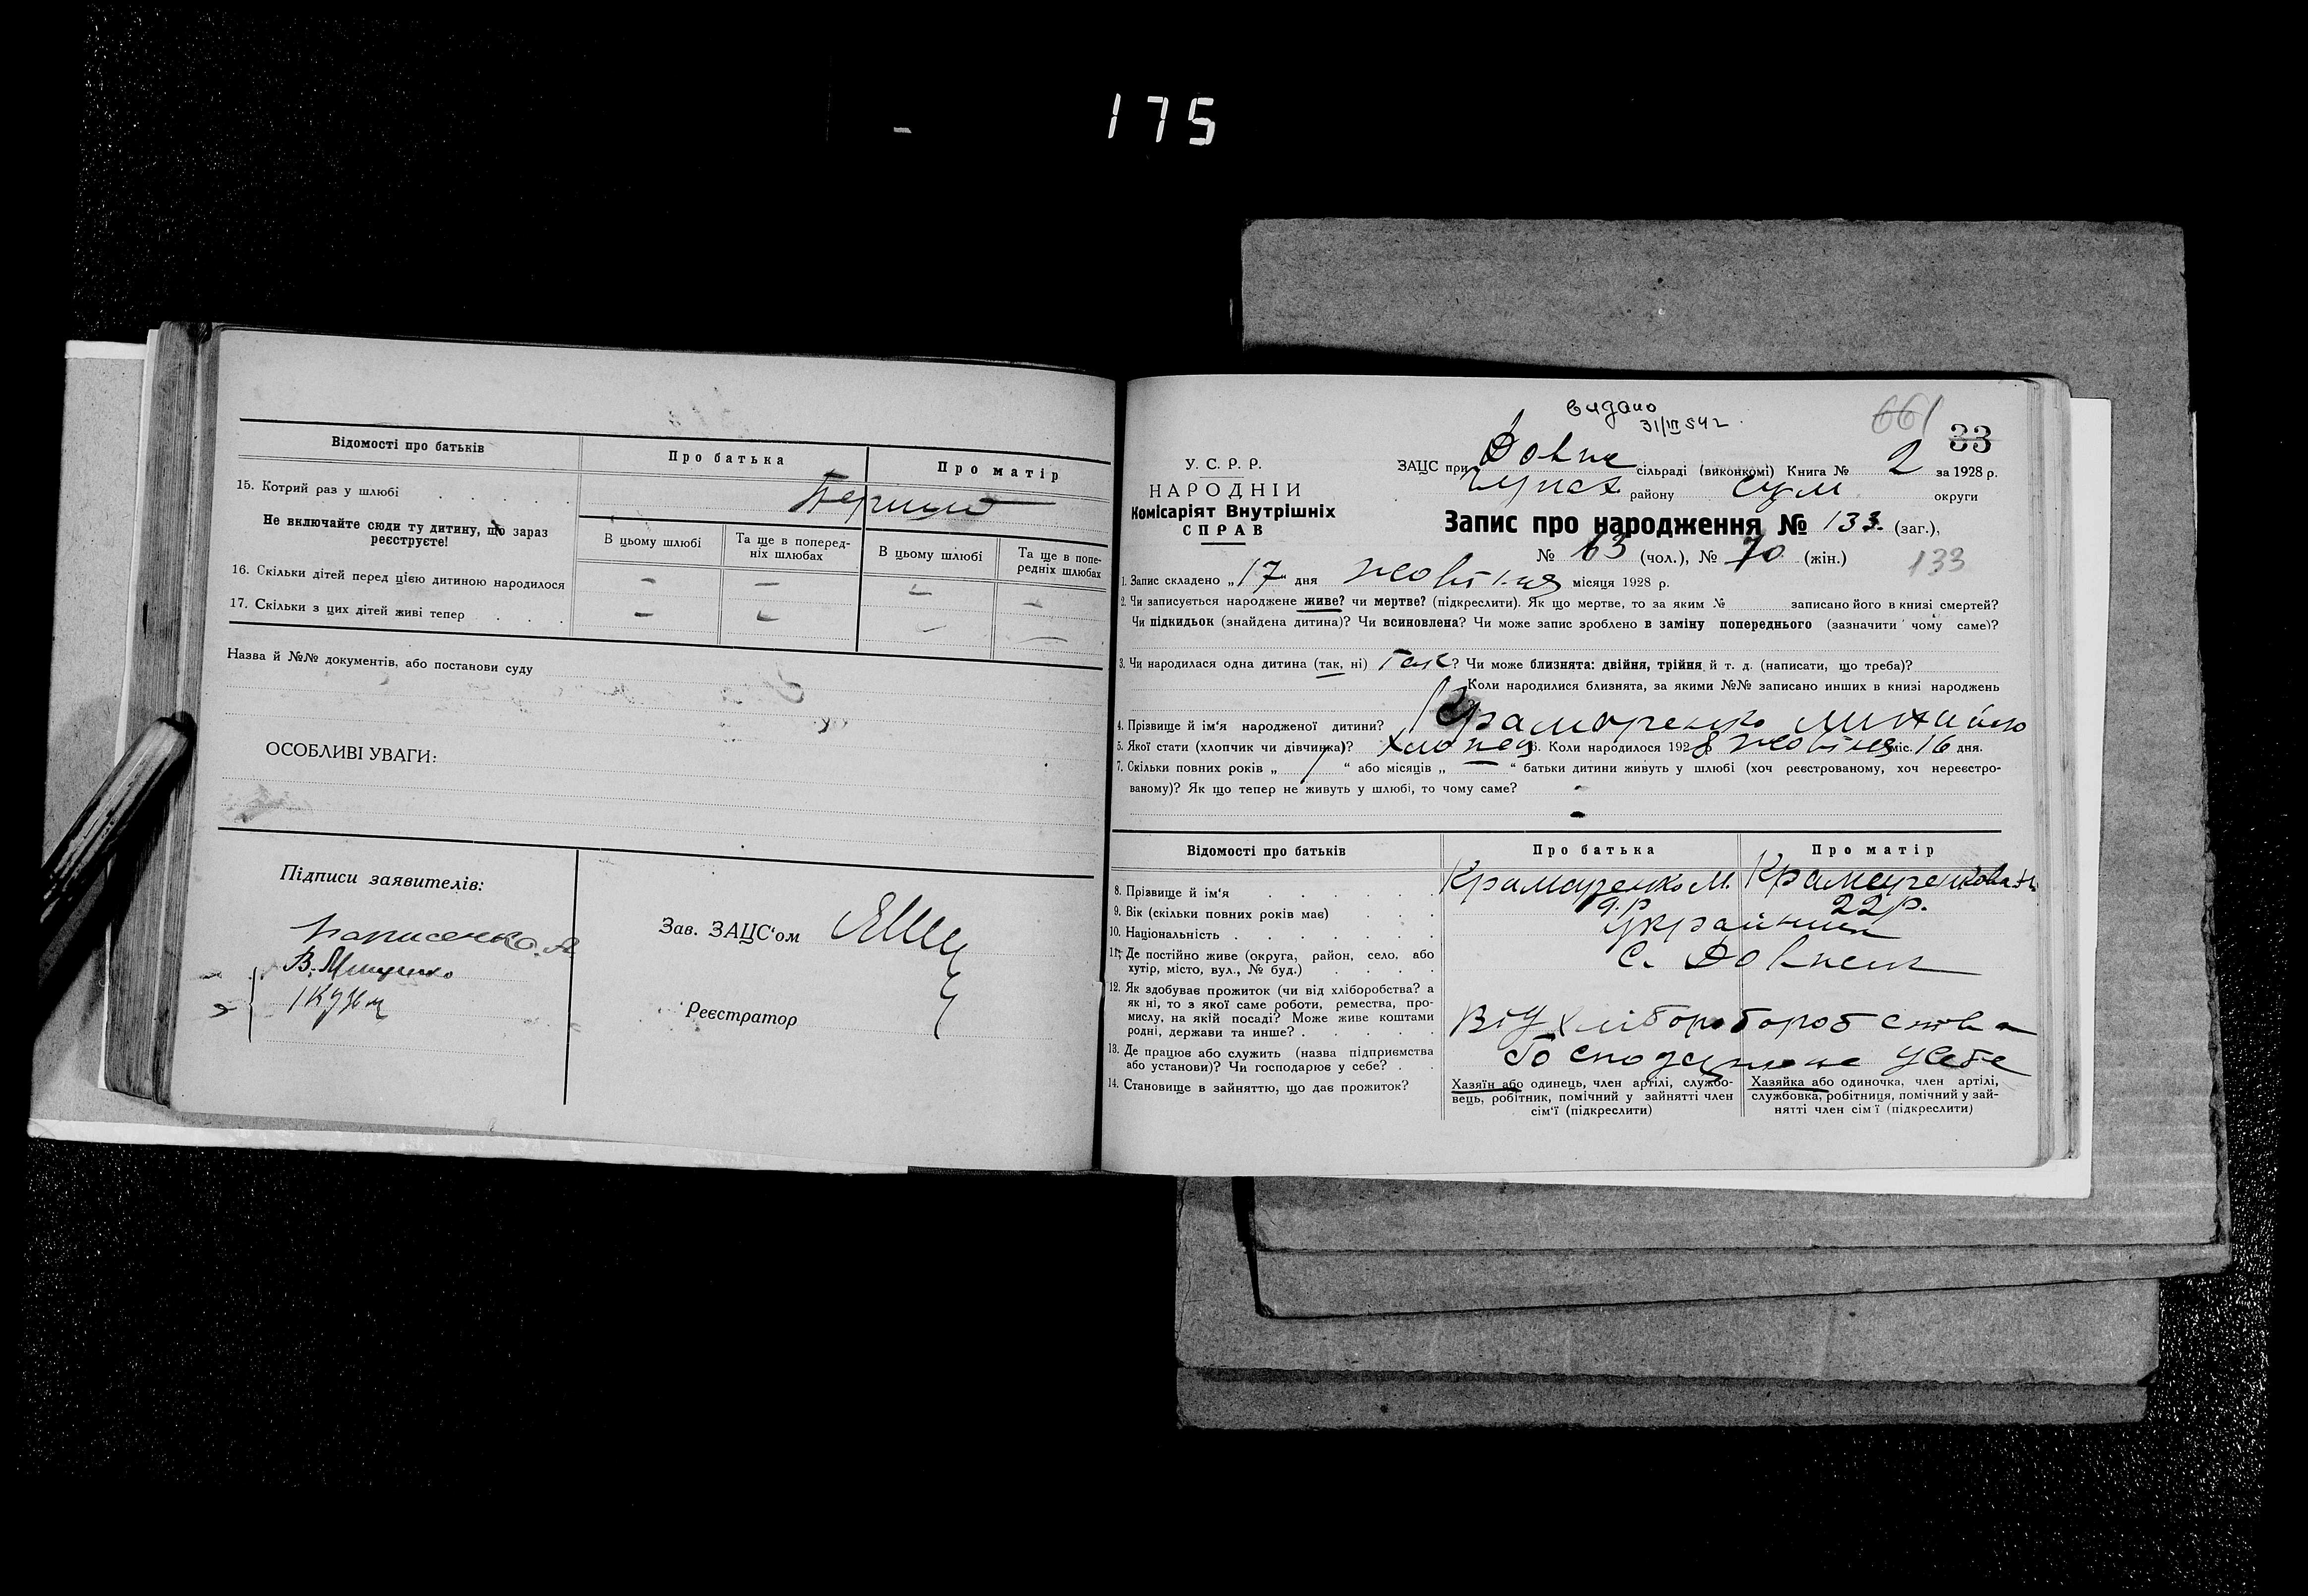 175
Відомості про батьків
Про батька
Про матір
15. Котрий раз у шлюбі
Не включайте сюди ту дитину, що зараз реєструєте!
В цьому шлюбі
Та ще в поперед-
ніх шлюбах
В цьому шлюбі
Та ще в попе-
редніх шлюбах
16. Скільки дітей перед цією дитиною народилося - - - -
17. Скільки з цих дітей живі тепер - - - -
Назва й №№ документів, або постанови суду
ОСОБЛИВІ УВАГИ:
Підписи заявителів:
Зав. ЗАЦС'ом
Реєстратор
видано
661
33
У. С. Р. Р.
НАРОДНІЙ
Комісаріят Внутрішніх
СПРАВ
ЗАЦС при сільраді (виконкомі) Книга № 2 за 1928 р.
району Сум округи
Запис про народження № 133 (заг.),
№ 63 (чол.), № 70 (жін.)
133
1. Запис складено „17" дня жовтня місяця 1928 р.
2. Чи записується народжене живе? чи мертве? (підкреслити). Як що мертве, то за яким № записано його в книзі смертей?
Чи підкидьок (знайдена дитина)? Чи всиновлена? Чи може запис зроблено в заміну попереднього (зазначити чому саме)?
3. Чи народилася одна дитина (так, ні) так? Чи може близнята: двійня, трійня й т. д. (написати, що треба)?
Коли народилися близнята, за якими №№ записано инших в книзі народжень
4. Прізвище й ім'я народженої дитини? Крамаренко Михайло
5. Якої стати (хлопчик чи дівчинка)? хлопець 6. Коли народилося 1928 жовтня міс. 16 дня.
7. Скільки повних років „ 1 " або місяців „ — " батьки дитини живуть у шлюбі (хоч реєстрованому, хоч нереєстро-
ваному)? Як що тепер не живуть у шлюбі, то чому саме? -
-
Відомості про батьків
Про батька
Про матір
8. Прізвище й ім'я Крамаренко М. Крамаренкова
9. Вік (скільки повних років має) 22 р.
10. Національність
11. Де постійно живе (округа, район, село, або
хутір, місто, вул., № буд.)
12. Як здобуває прожиток (чи від хліборобства? а
як ні, то з якої саме роботи, ремества, про-
мислу, на якій посаді? Може живе коштами
родні, держави та инше?
13. Де працює або служить (назва підприємства
або установи)? Чи господарює у себе?
14. Становище в зайняттю, що дає прожиток?
Хазяїн або одинець, член артілі, службо-
вець, робітник, помічний у зайнятті член
сім'ї (підкреслити)
Хазяйка або одиночка, член артілі,
службовка, робітниця, помічний у зай-
нятті член сім'ї (підкреслити)